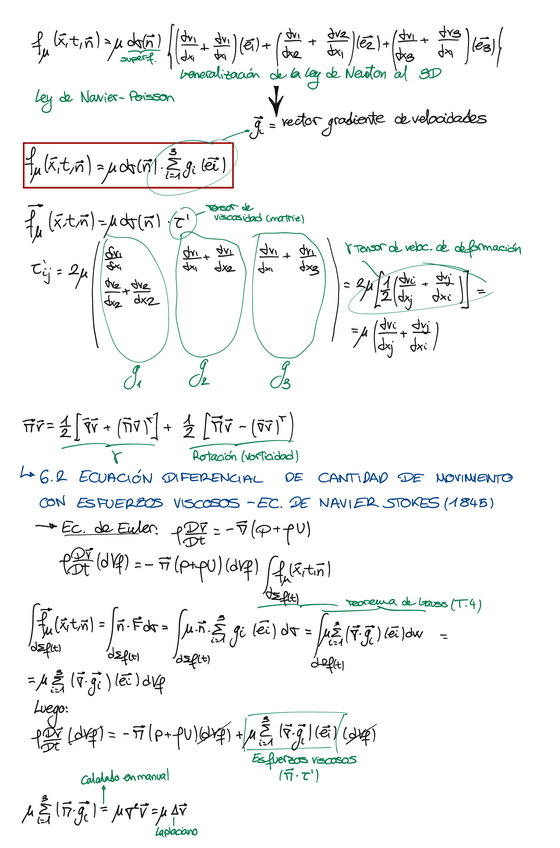 f_μ(x⃗,t,n⃗) = μ dσ(n⃗) {(dv₁/dx₁ + dv₁/dx₁)(e⃗₁) + (dv₁/dx₂ + dv₂/dx₁)(e⃗₂) + (dv₁/dx₃ + dv₃/dx₁)(e⃗₃)}
superf.
Generalización de la Ley de Newton al 3D
Ley de Navier-Poisson
g⃗ᵢ = vector gradiente de velocidades
f_μ(x⃗,t,n⃗) = μ dσ(n⃗) · Σᵢ₌₁³ gᵢ(e⃗ᵢ)
f⃗_μ(x⃗,t,n⃗) = μ dσ(n⃗) · τ'
Tensor de
viscosidad (matriz)
γ Tensor de veloc. de deformación
τ'ᵢⱼ = 2μ ( dv₁/dx₁ dv₁/dx₁ + dv₁/dx₂ dv₁/dx₁ + dv₁/dx₃ ) = 2μ[½(dvᵢ/dxⱼ + dvⱼ/dxᵢ)] =
dv₂/dx₂ + dv₂/dx₂
= μ(dvᵢ/dxⱼ + dvⱼ/dxᵢ)
g₁ g₂ g₃
∇⃗v⃗ = ½[∇⃗v⃗ + (∇⃗v⃗)ᵀ] + ½[∇⃗v⃗ − (∇⃗v⃗)ᵀ]
γ Rotación (vorticidad)
↳ 6.2 ECUACIÓN DIFERENCIAL DE CANTIDAD DE MOVIMIENTO
CON ESFUERZOS VISCOSOS - EC. DE NAVIER STOKES (1845)
→ Ec. de Euler: ρ Dv⃗/Dt = −∇⃗(p+ρU)
ρ Dv⃗/Dt (dVf) = −∇⃗(p+ρU)(dVf) ∫_dΣf(t) f⃗_μ(x⃗,t,n⃗)
Teorema de Gauss (T.4)
∫_dΣf(t) f⃗_μ(x⃗,t,n⃗) = ∫_dΣf(t) n⃗·F dσ = ∫_dΣf(t) μ·n⃗· Σᵢ₌₁³ gᵢ(e⃗ᵢ) dσ = ∫_dΩf(t) μ Σᵢ₌₁³ (∇⃗·g⃗ᵢ)(e⃗ᵢ) dw =
= μ Σᵢ₌₁³ (∇⃗·g⃗ᵢ)(e⃗ᵢ) dVf
Luego:
ρ Dv⃗/Dt (dVf) = −∇⃗(p+ρU)(dVf) + μ Σᵢ₌₁³ (∇⃗·g⃗ᵢ)(e⃗ᵢ) (dVf)
Esfuerzos viscosos
(∇⃗·τ')
Calculado en manual
μ Σᵢ₌₁³ (∇⃗·g⃗ᵢ) = μ∇²v⃗ = μ Δv⃗
Laplaciano